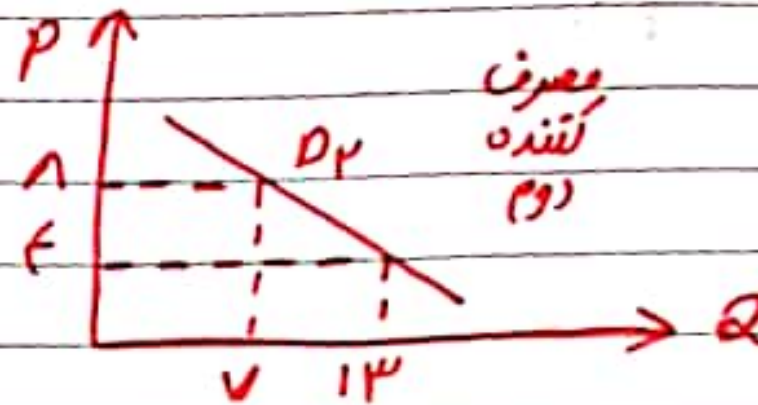 P
مصرف
کننده
دوم
D۲
۸
۴
۷ ۱۳
Q